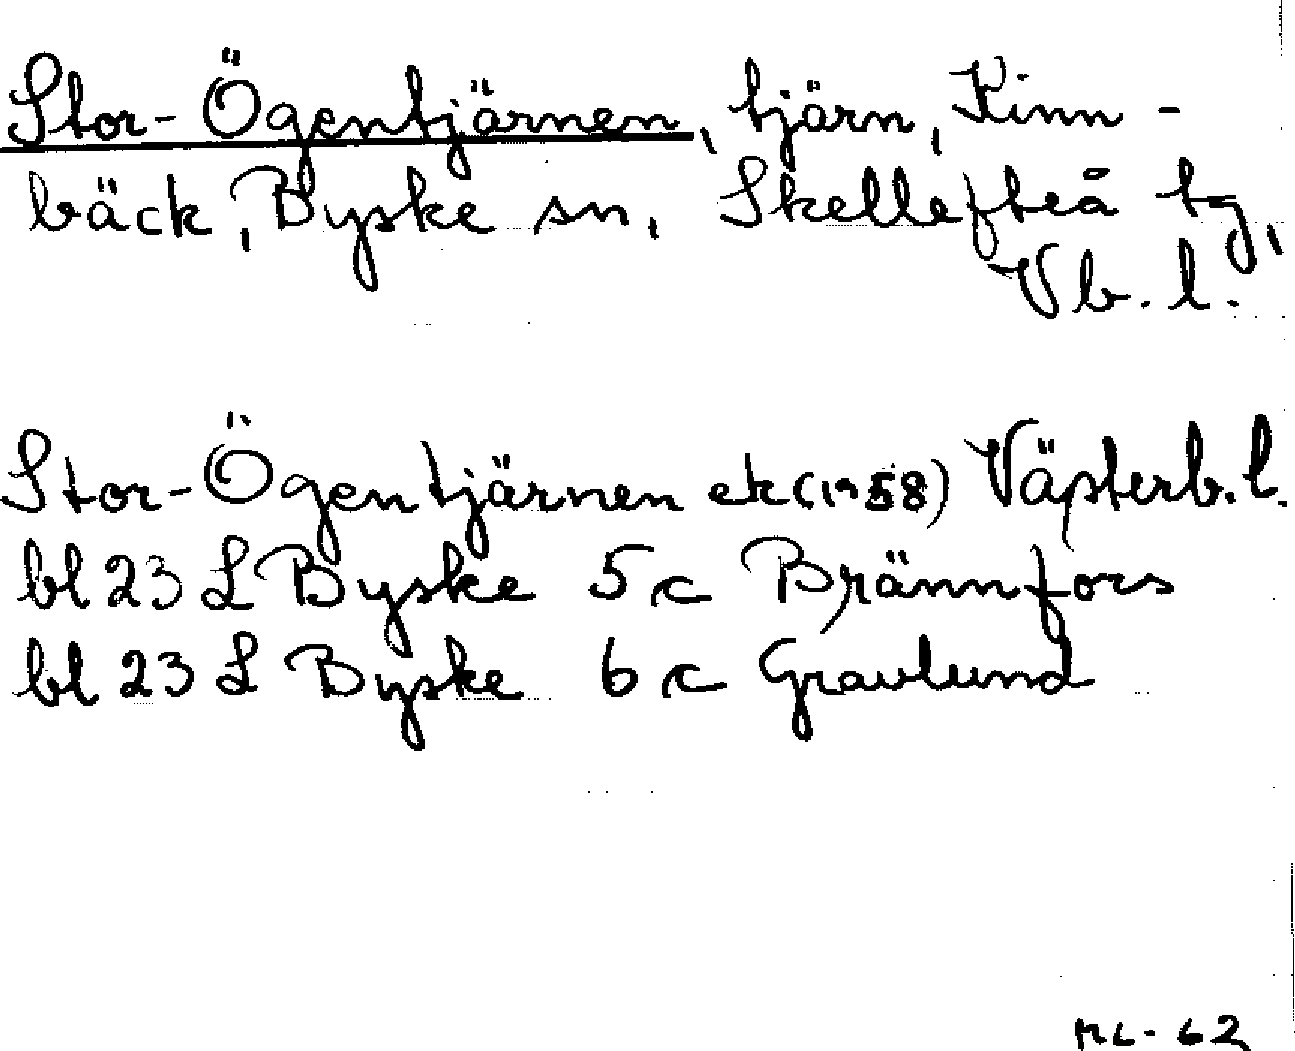 Stor-Ögentjärnen, tjärn, Kinn-
bäck, Byske sn, Skellefteå tg,
Vb. l.
Stor-Ögentjärnen ek (1958) Västerb. l.
bl 23 L Byske 5 c Brännfors
bl 23 L Byske 6 c Gravlund
ML-62